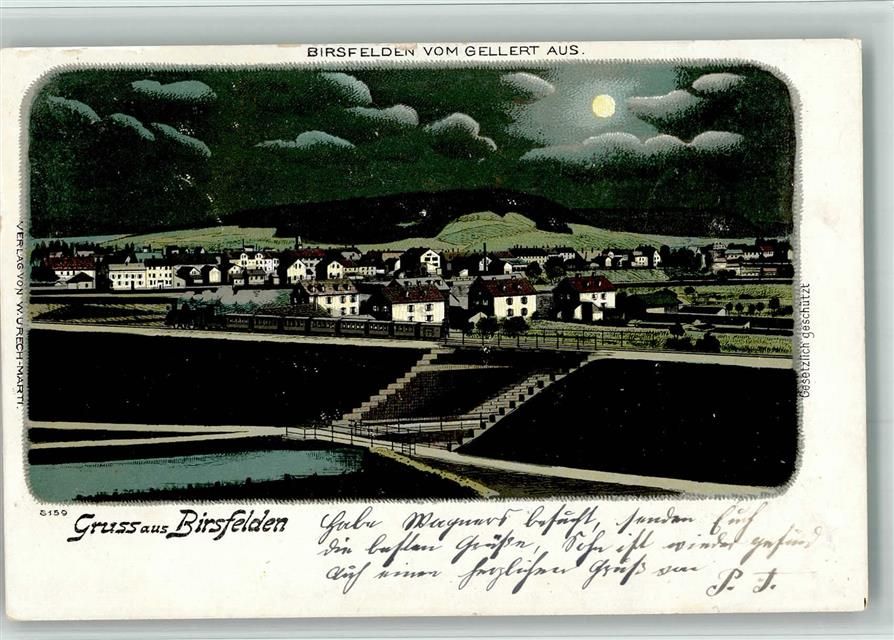 BIRSFELDEN VOM GELLERT AUS.
VERLAG VON W. URECH-MARTI.
Gesetzlich geschützt
5159
Gruss aus Birsfelden
Habe Wagners besucht, senden Euch
die besten Grüße, Sohn ist wieder gesund
Auch einen herzlichen Gruß von
P. T.